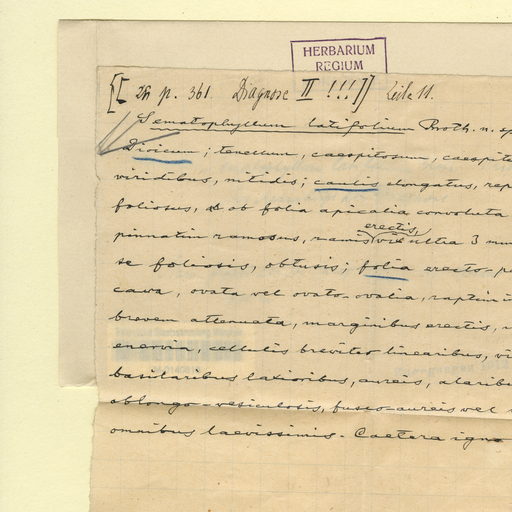 HERBARIUM
REGIUM
[[ zu p. 361. Diagnose II !!! ]] Zeile 11.
Sematophyllum latifolium Broth. n. sp
Dioicum; tenellum, caespitosum, caespite
viridibus, nitidis; caulis elongatus, rep
foliosus, ob folia apicalia convoluta
erectis,
pinnatim ramosus, ramis vix ultra 3 mm
se foliosis, obtusis; folia erecto-p
cava, ovata vel ovato-ovalia, raptim i
brevem attenuata, marginibus erectis,
enervia, cellulis breviter linearibus, vi
basilaribus laxioribus, aureis, alaribu
oblongo-vesiculosis, fusco-aureis vel
omnibus laevissimis. Caetera igno